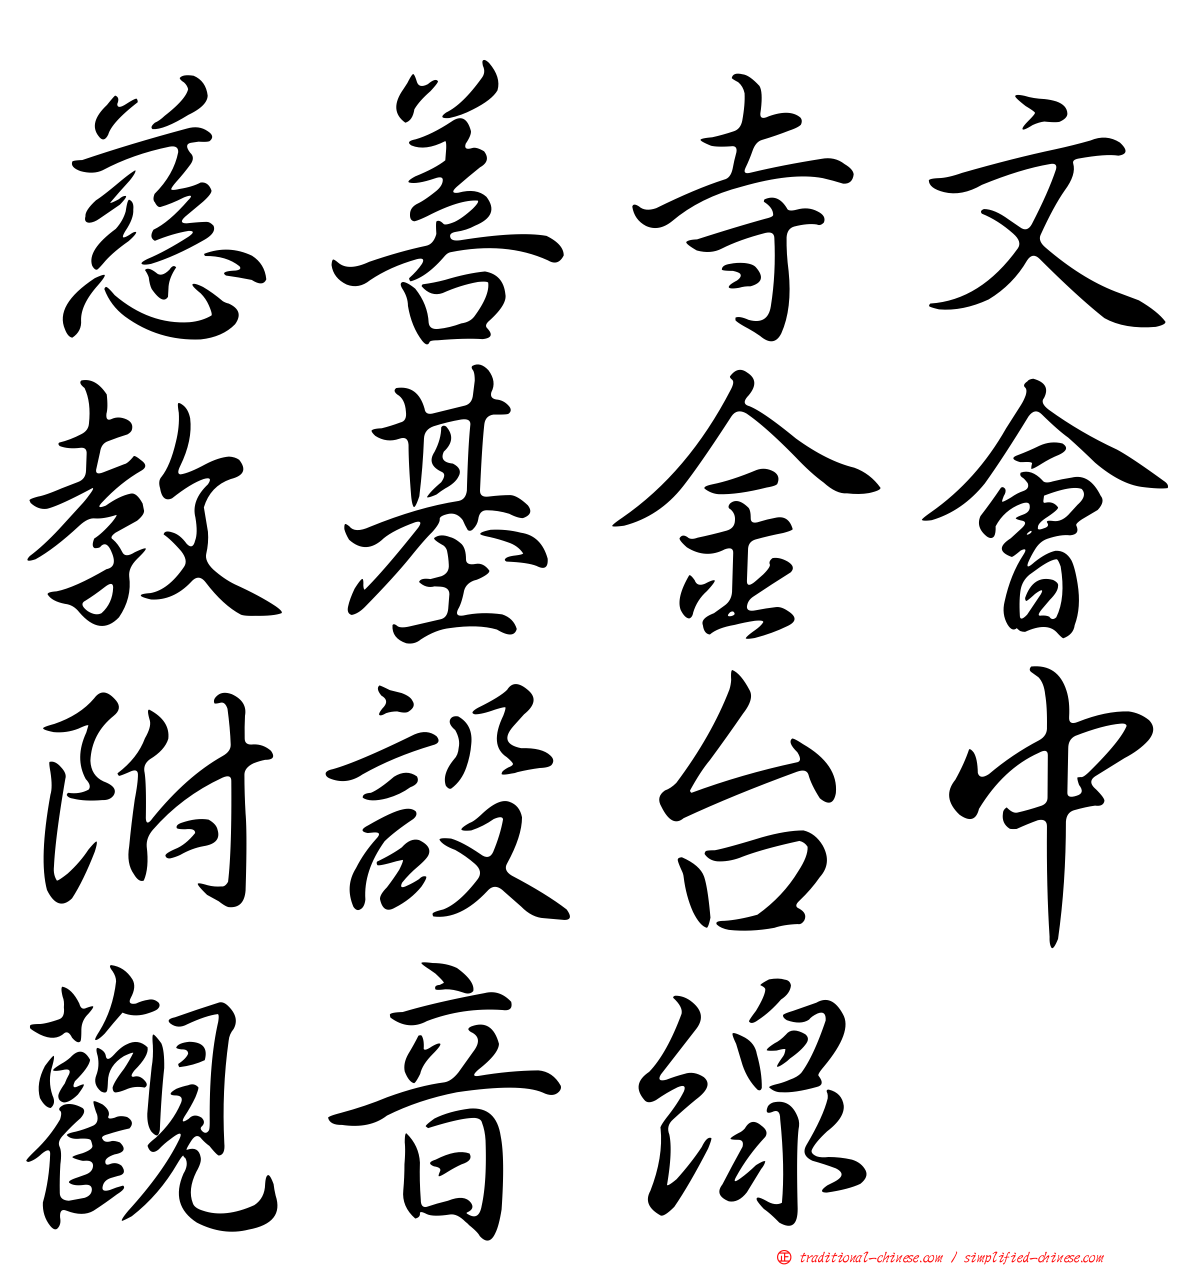 慈善寺文
教基金會
附設台中
觀音線
正 traditional-chinese.com / simplified-chinese.com